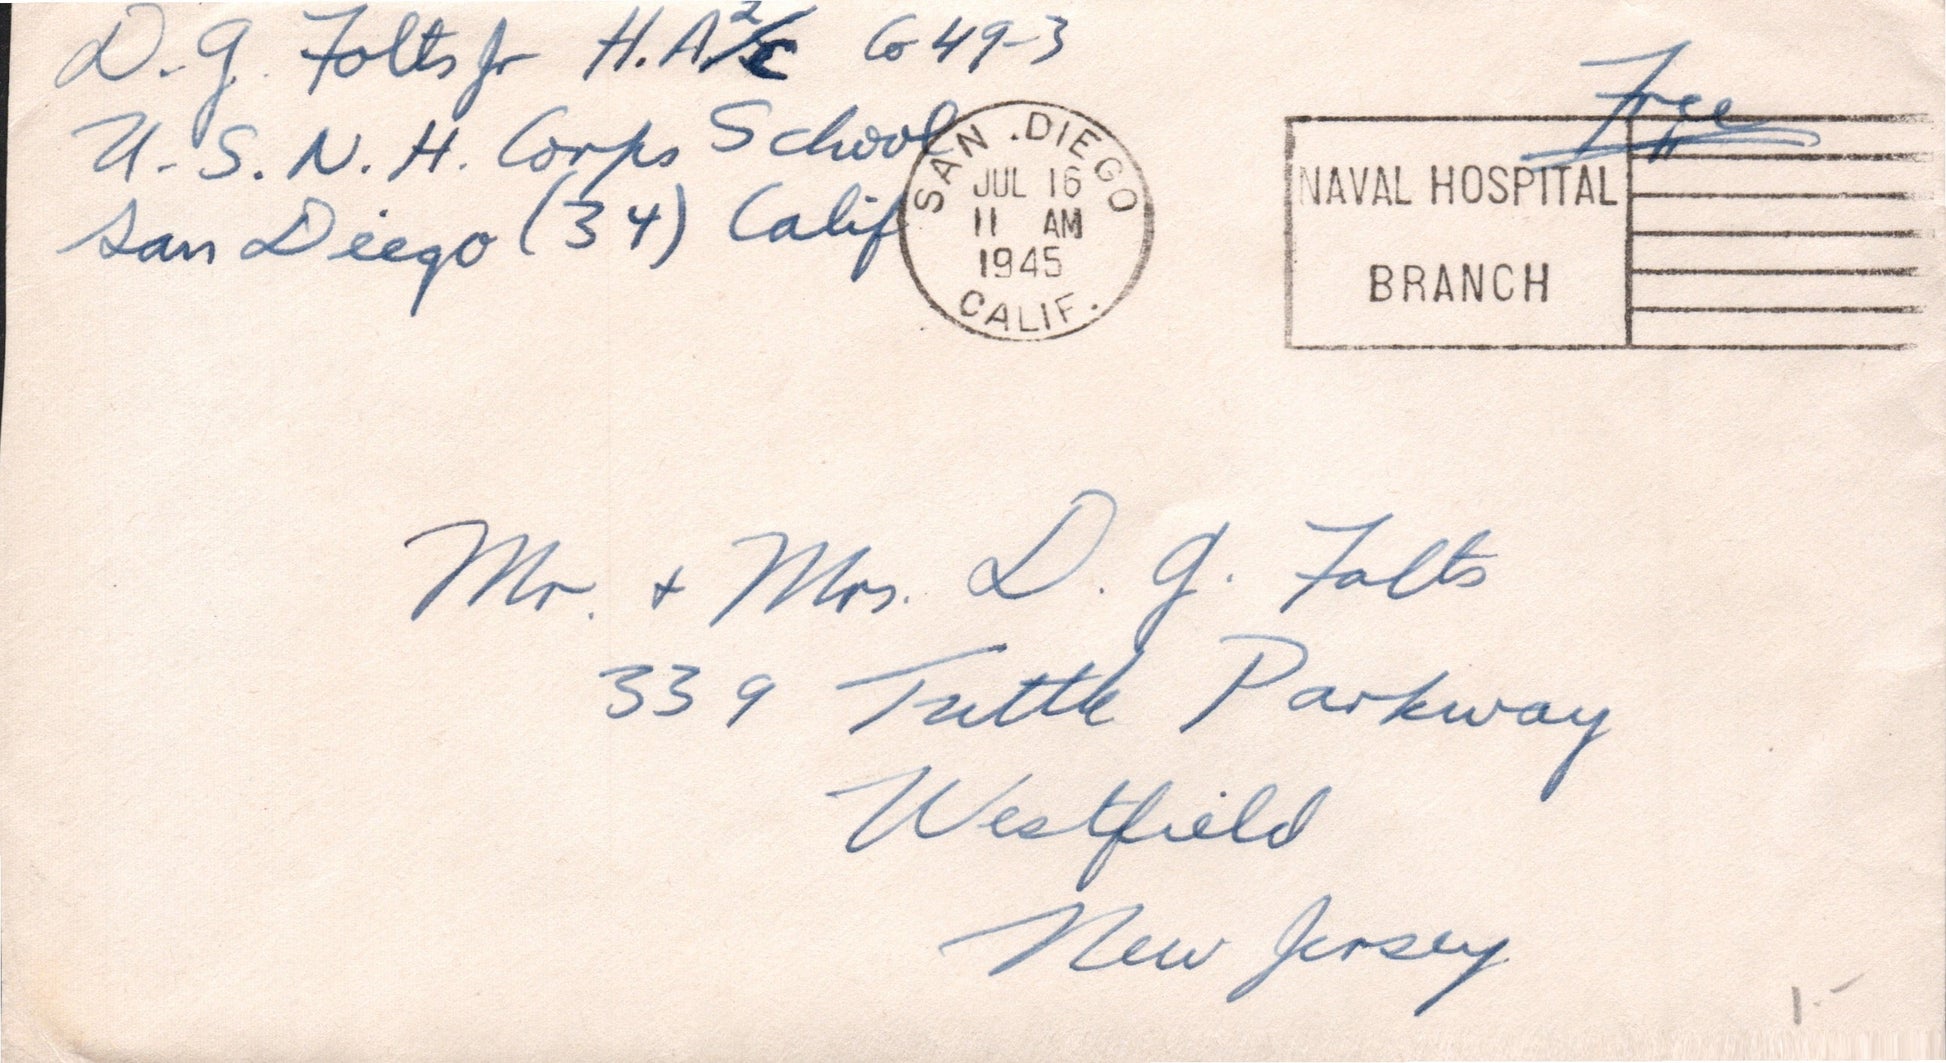 D. G. Folts Jr H.A 2/c Co 49-3
U. S. N. H. Corps School
San Diego (34) Calif
SAN DIEGO
JUL 16
11 AM
1945
CALIF.
Free
NAVAL HOSPITAL
BRANCH
Mr. + Mrs. D. G. Folts
339 Tuttle Parkway
Westfield
New Jersey